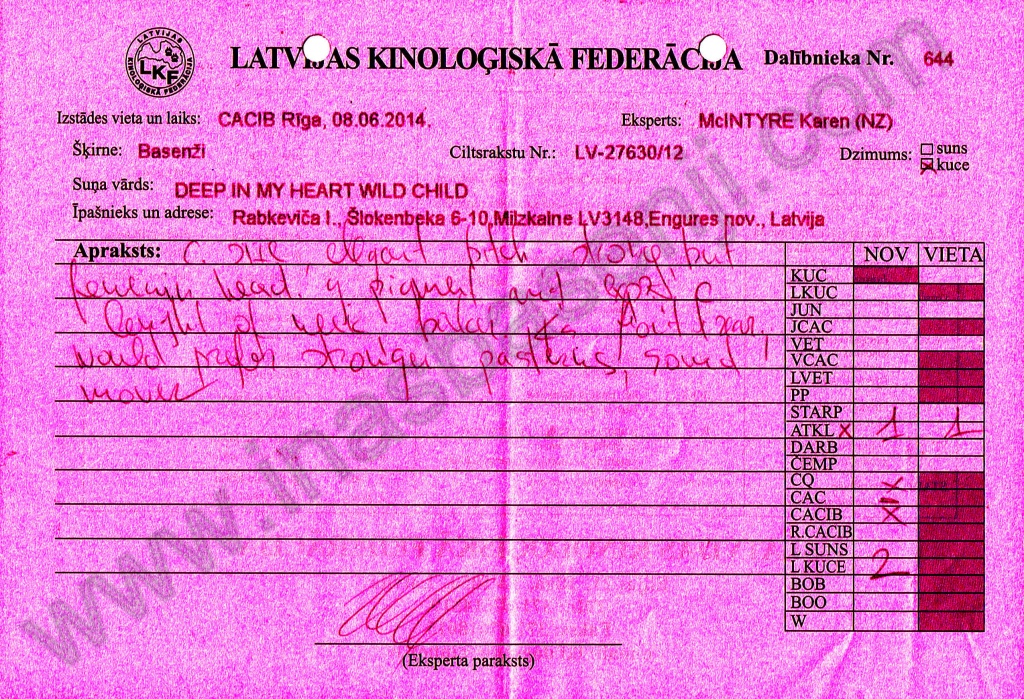 LATVIJAS KINOLOĢISKĀ FEDERĀCIJA
LKF
LATVIJAS KINOLOĢISKĀ FEDERĀCIJA Dalībnieka Nr. 644
Izstādes vieta un laiks: CACIB Rīga, 08.06.2014. Eksperts: McINTYRE Karen (NZ)
Šķirne: Basenži Ciltsrakstu Nr.: LV-27630/12 Dzimums: suns
kuce
Suņa vārds: DEEP IN MY HEART WILD CHILD
Īpašnieks un adrese: Rabkeviča I., Šlokenbeka 6-10,Milzkalne LV3148,Engures nov., Latvija
Apraksts: size, elegant bitch strong but
head. pigment and
length of neck
would prefer stronger pasterns, sound
mover
NOV VIETA
KUC
LKUC
JUN
JCAC
VET
VCAC
LVET
PP
STARP
ATKL x 1 1
DARB
ČEMP
CQ x
CAC
CACIB x
R.CACIB
L SUNS
L KUCE 2
BOB
BOO
W
(Eksperta paraksts)
www.inasbasenji.com